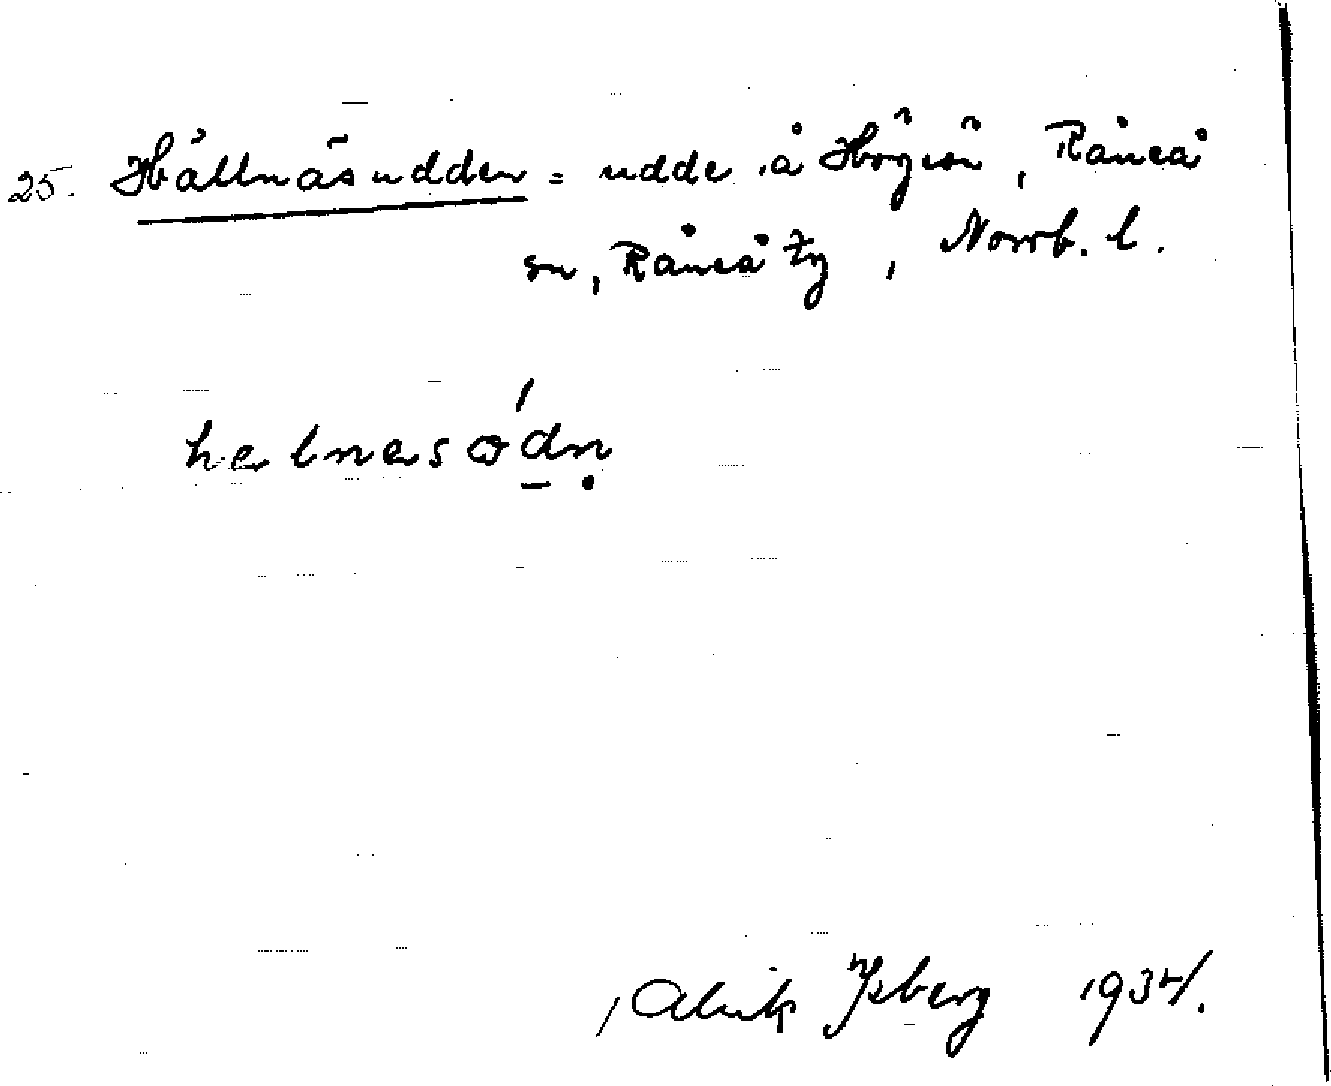 25. Hällnäsudden = udde å Högsön, Råneå
sn, Råneå tg, Norrb. l.
hęlnęsớdn̥
Alrik Ysberg 1934.